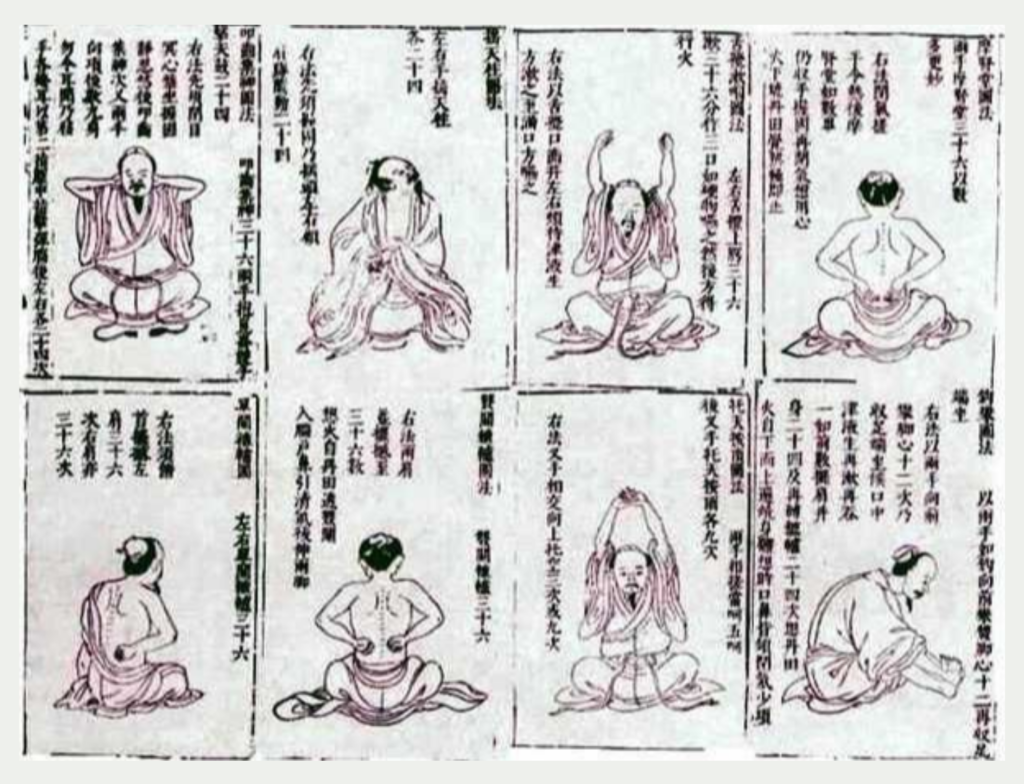 叩齒集神圖法　叩齒集神三十六兩手抱崑崙雙手
擊天鼓二十四
右法先須閉目
冥心盤坐握固
靜思然後叩齒
集神次叉兩手
向項後數九息
勿令耳聞乃移
手各掩耳以第二指壓中指擊彈腦後左右各二十四次
搖天柱圖法
左右手搖天柱
各二十四
右法先須握固乃搖頭左右顧
肩膊隨動二十四
舌攪漱咽圖法　左右舌攪上腭三十六
漱三十六分作三口如硬物嚥之然後方得
行火
右法以舌攪口齒并左右頰待津液生
方漱之至滿口方嚥之
摩腎堂圖法
兩手摩腎堂三十六以數
多更妙
右法閉氣搓
手令熱後摩
腎堂如數畢
仍收手握固再閉氣想用心
火下燒丹田覺熱極即止
單關轆轤圖　左右單關轆轤三十六
右法須俯
首擺撼左
肩三十六
次右肩亦
三十六次
雙關轆轤圖法　雙關轆轤三十六
右法兩肩
並擺撼至
三十六數
想火自丹田透雙關
入腦戶鼻引清氣後伸兩腳
托天按頂圖法　兩手相搓當呵五呵
後叉手托天按頂各九次
右法叉手相交向上托空三次或九次
鉤攀圖法　以兩手如鉤向前攀雙腳心十二再收足
端坐
右法以兩手向前
攀腳心十二次乃
收足端坐候口中
津液生再漱再吞
一如前數擺肩并
身二十四及再轉轆轤二十四次想丹田
火自下而上遍燒身體想時口鼻皆須閉氣少頃